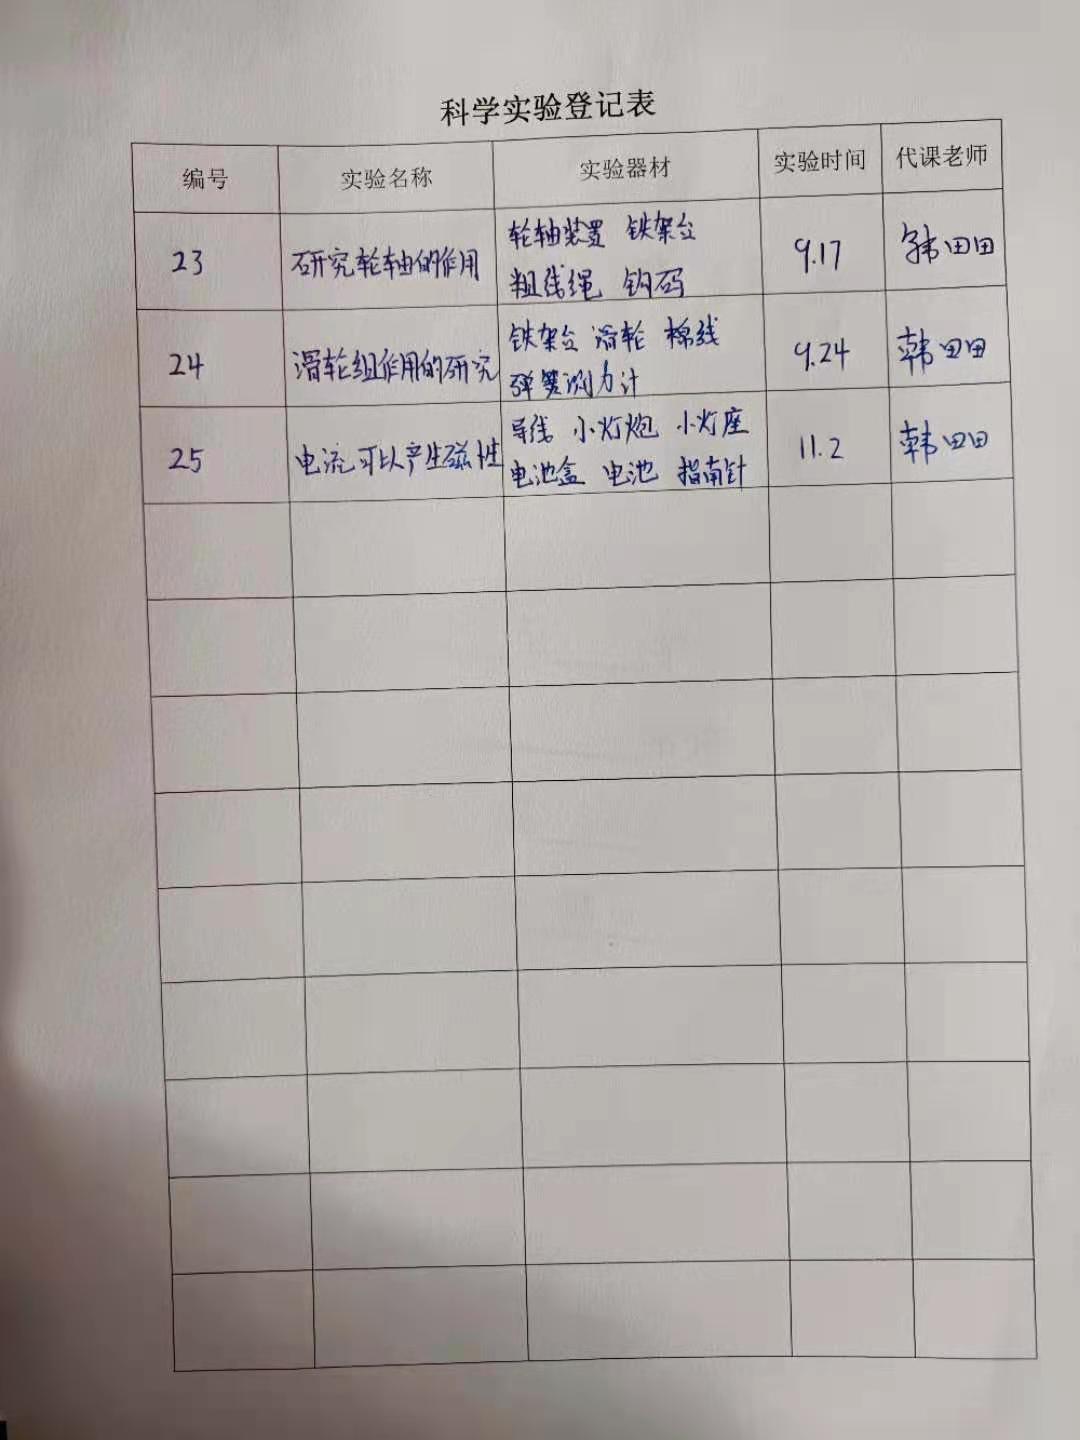 科学实验登记表
编号 实验名称 实验器材 实验时间 代课老师
23 研究轮轴的作用 轮轴装置 铁架台 9.17 韩田田
粗线绳 钩码
24 滑轮组作用的研究 铁架台 滑轮 棉线 9.24 韩田田
弹簧测力计
25 电流可以产生磁性 导线 小灯炮 小灯座 11.2 韩田田
电池盒 电池 指南针